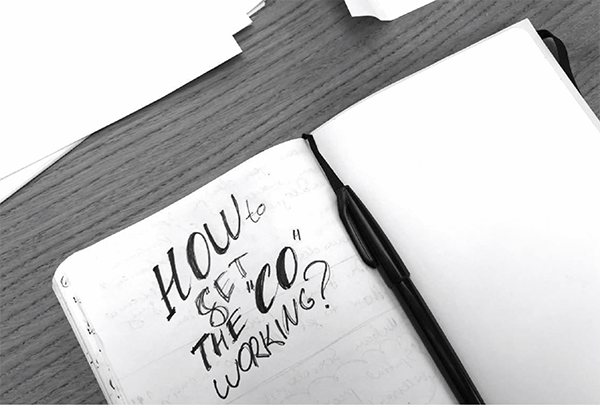 HOW to
GET
THE "CO"
WORKING?